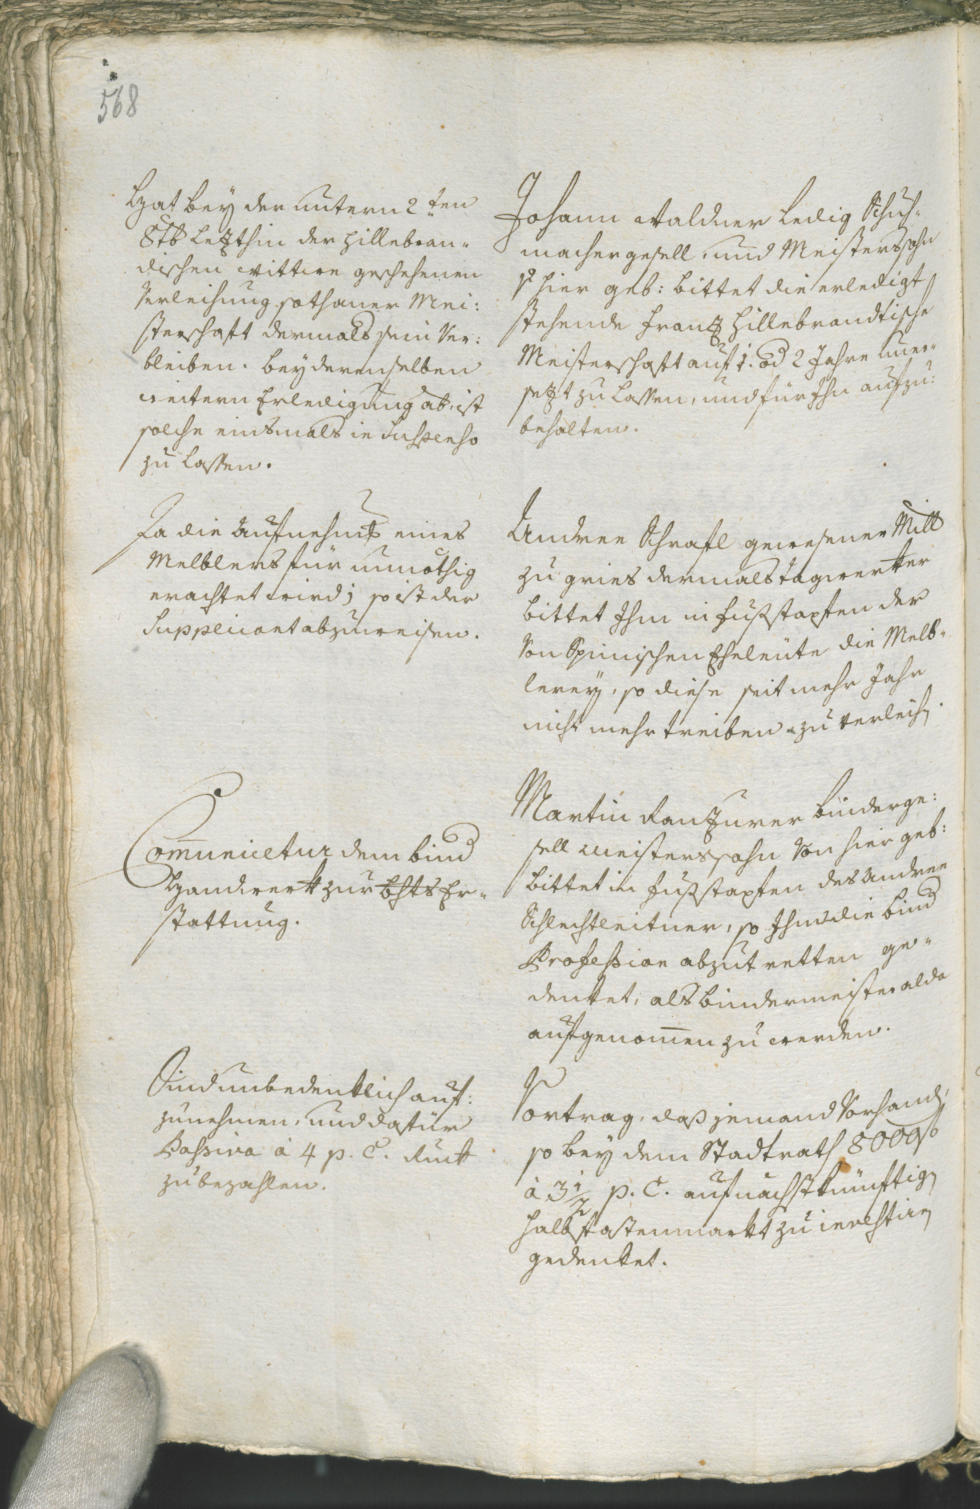 568
Hat bey der untern 2ten
8tb letzthin der Hillebran-
dischen Wittwe geschehenen
Verleihung sothaner Mei:
sterschaft dermals sein Ver:
bleiben. bey derenselben
weitern Erledigung ab, ist
solche einsmals in
zu lassen.
Johann Waldner ledig Schuh-
machergesell, und Meisterssohn
hier geb: bittet die erledigt
stehende Frantz Hillebrandtische
Meisterschaft auf 1. od 2 Jahre uner-
setzt zu lassen, und für Ihn aufzu:
behalten.
Da die Aufnehmung eines
Melblers für unnöthig
erachtet wird; so ist der
Supplicant abzuweisen.
Andree Schrafl gewesener Mill
zu gries dermals tagwerker
bittet Ihm in Fußstapfen der
Von Spinischen Eheleute die Melb-
lerey, so diese seit mehr Jahr
nicht mehr treiben zu verleih.
Comunicetur dem bind
Handwerk zur Bhts Er-
stattung.
Martin Ranzurer binderge:
sell Meisterssohn Von hier geb:
bittet in Fußstapfen des Andree
Schlechtleitner, so Ihm die bind
Profession abzutretten ge-
denket, als bindermeister alda
aufgenomen zu werden.
Sind unbedenklich auf:
zunehmen, und dafür
Passiva à 4 p. C. Ruck
zu bezahlen.
Vortrag, daß jemand Vorhand,
so bey dem Stadtrath 8000 f
à 3 1/2 p. C. auf nächstkünftig
halbfastenmarkt zu
gedenket.